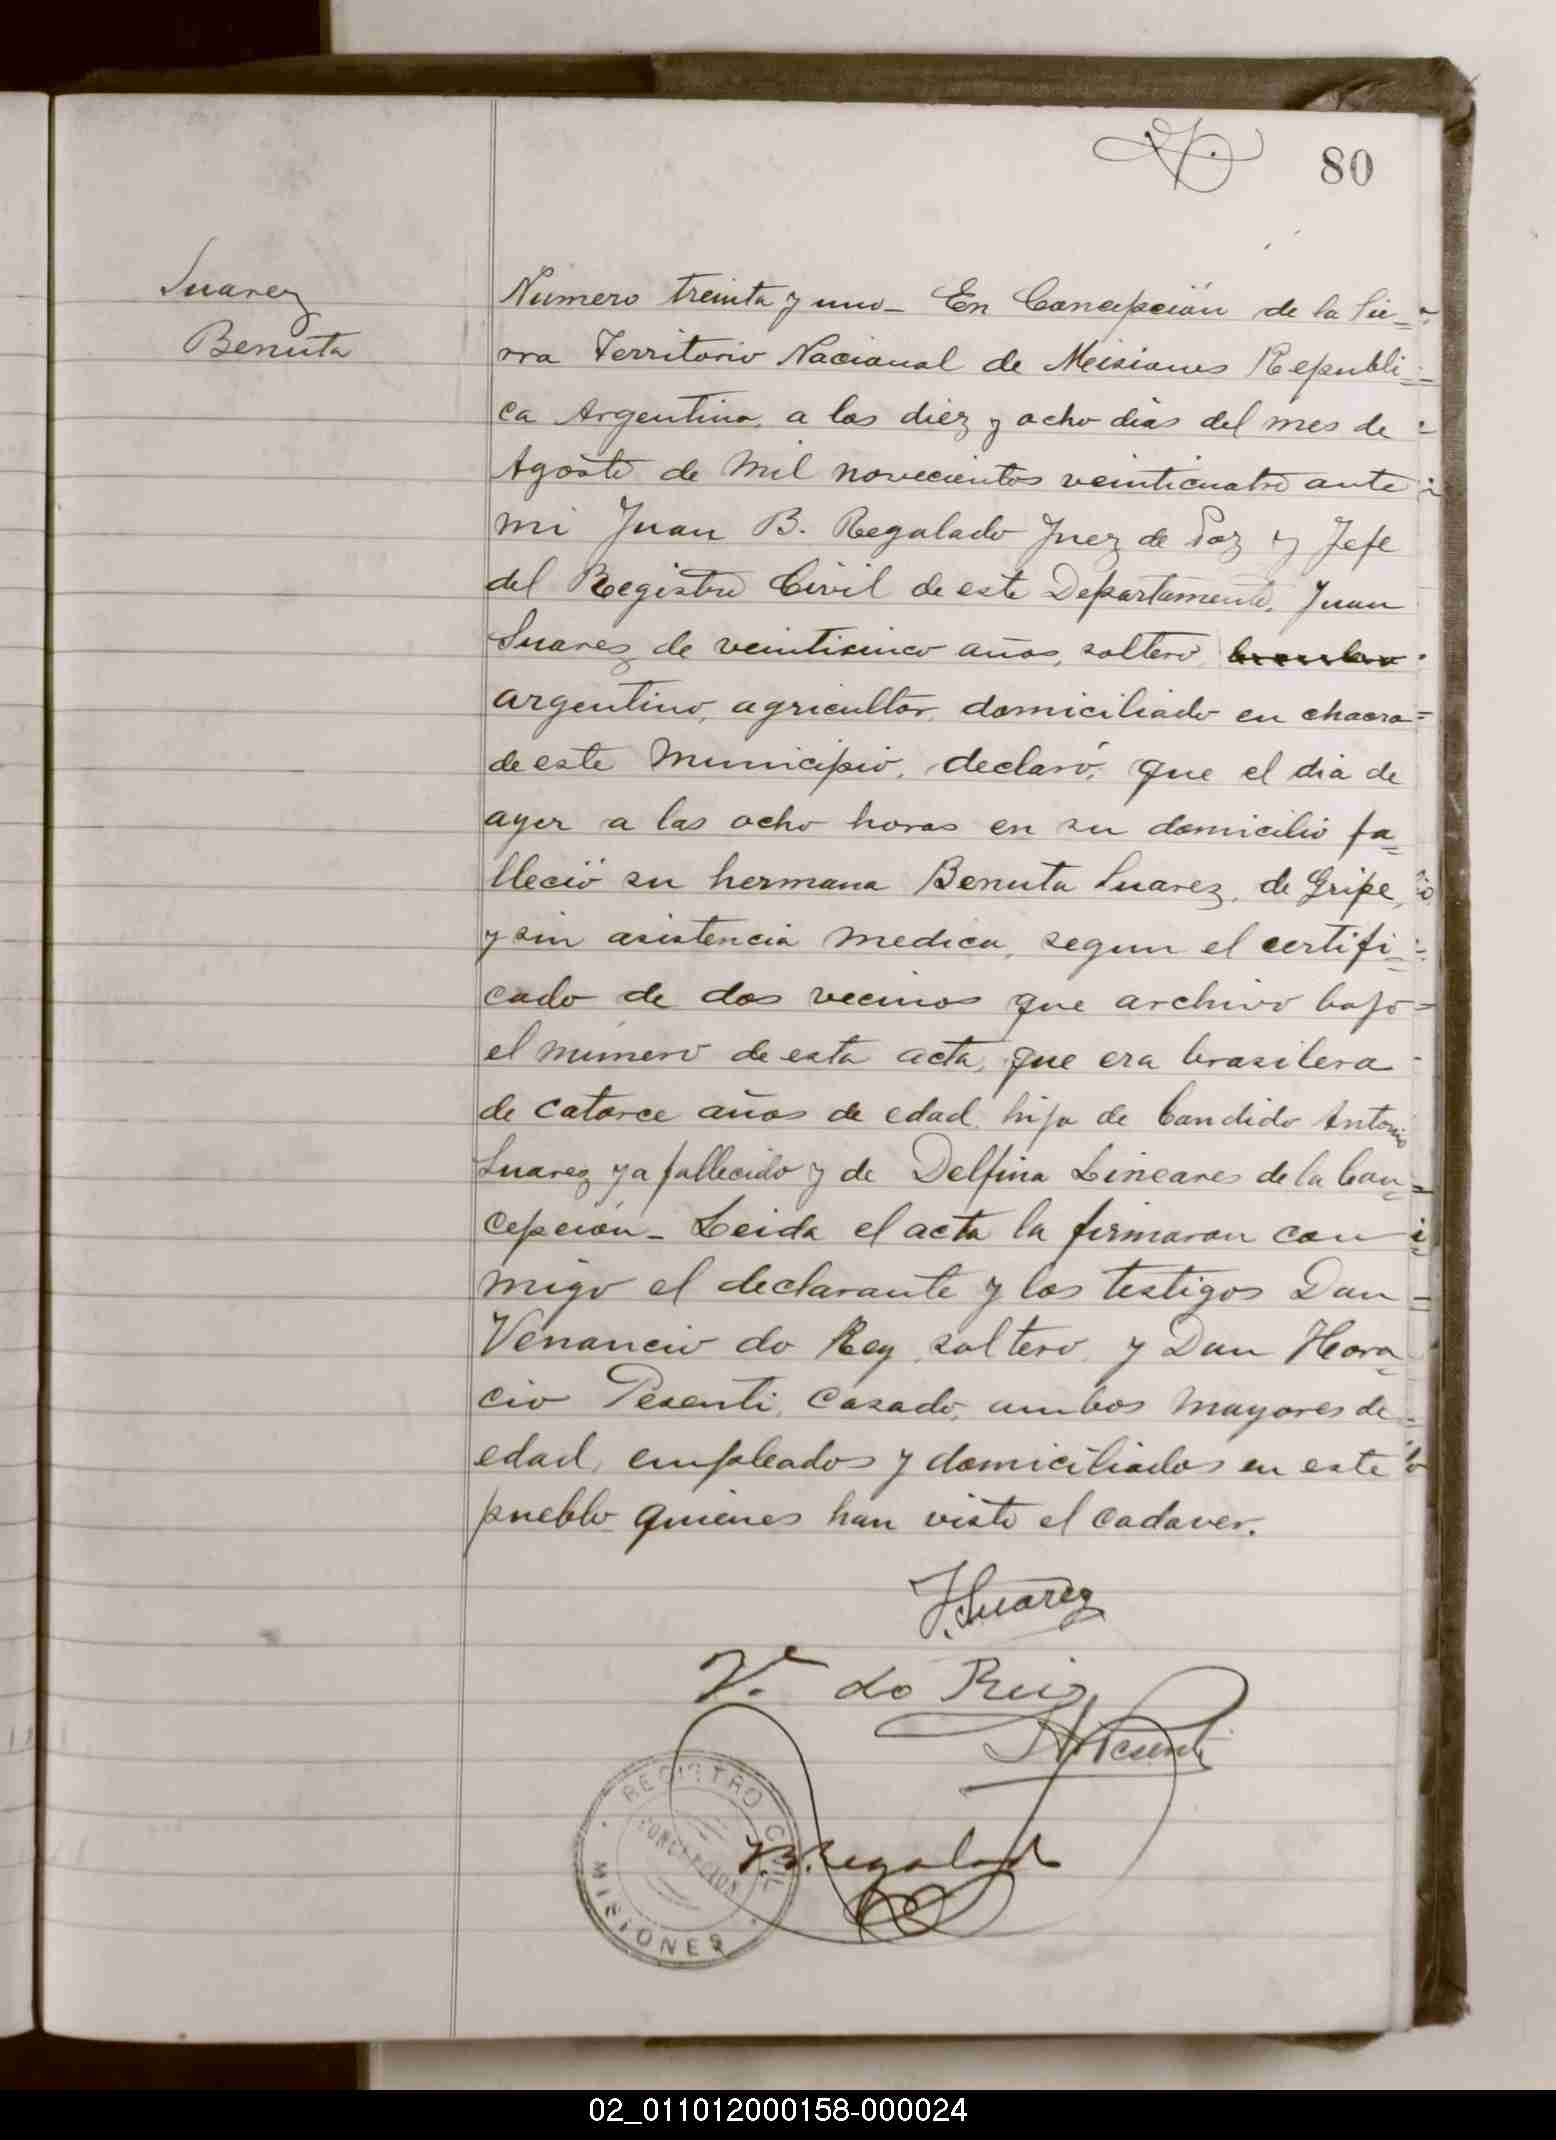 80
Suarez
Benuta
Numero treinta y uno_ En Concepción de la Sie=
rra Territorio Nacional de Meisiones Republi=
ca Argentina, a los diez y ocho dias del mes de
Agosto de mil novecientos veinticuatro ante
mi Juan B. Regalado Juez de Paz y Jefe
del Registro Civil de este Departamento, Juan
Suarez de veinticinco años, soltero,
argentino, agricultor, domiciliado en chacra
de este Municipio, declaró; que el dia de
ayer a las ocho horas en su domicilio fa=
lleció su hermana Benuta Suarez, de Gripe,
y sin asistencia medica, segun el certifi=
cado de dos vecinos que archivo bajo
el número de esta acta, que era brasilera
de catorce años de edad, hija de Candido Antonio
Suarez ya fallecido y de Delfina Lineares de la Con=
cepción_ Leida el acta la firmaron con
migo el declarante y los testigos Don
Venancio do Rey, soltero, y Don Hora=
cio Pesenti, casado, ambos mayores de
edad, empleados y domiciliados en este
pueblo quienes han visto el cadaver.
J. Suarez
V. do Reis
H Pesenti
J. B. Regalado
REGISTRO CIVIL
CONCEPCION
MISIONES
02_011012000158-000024